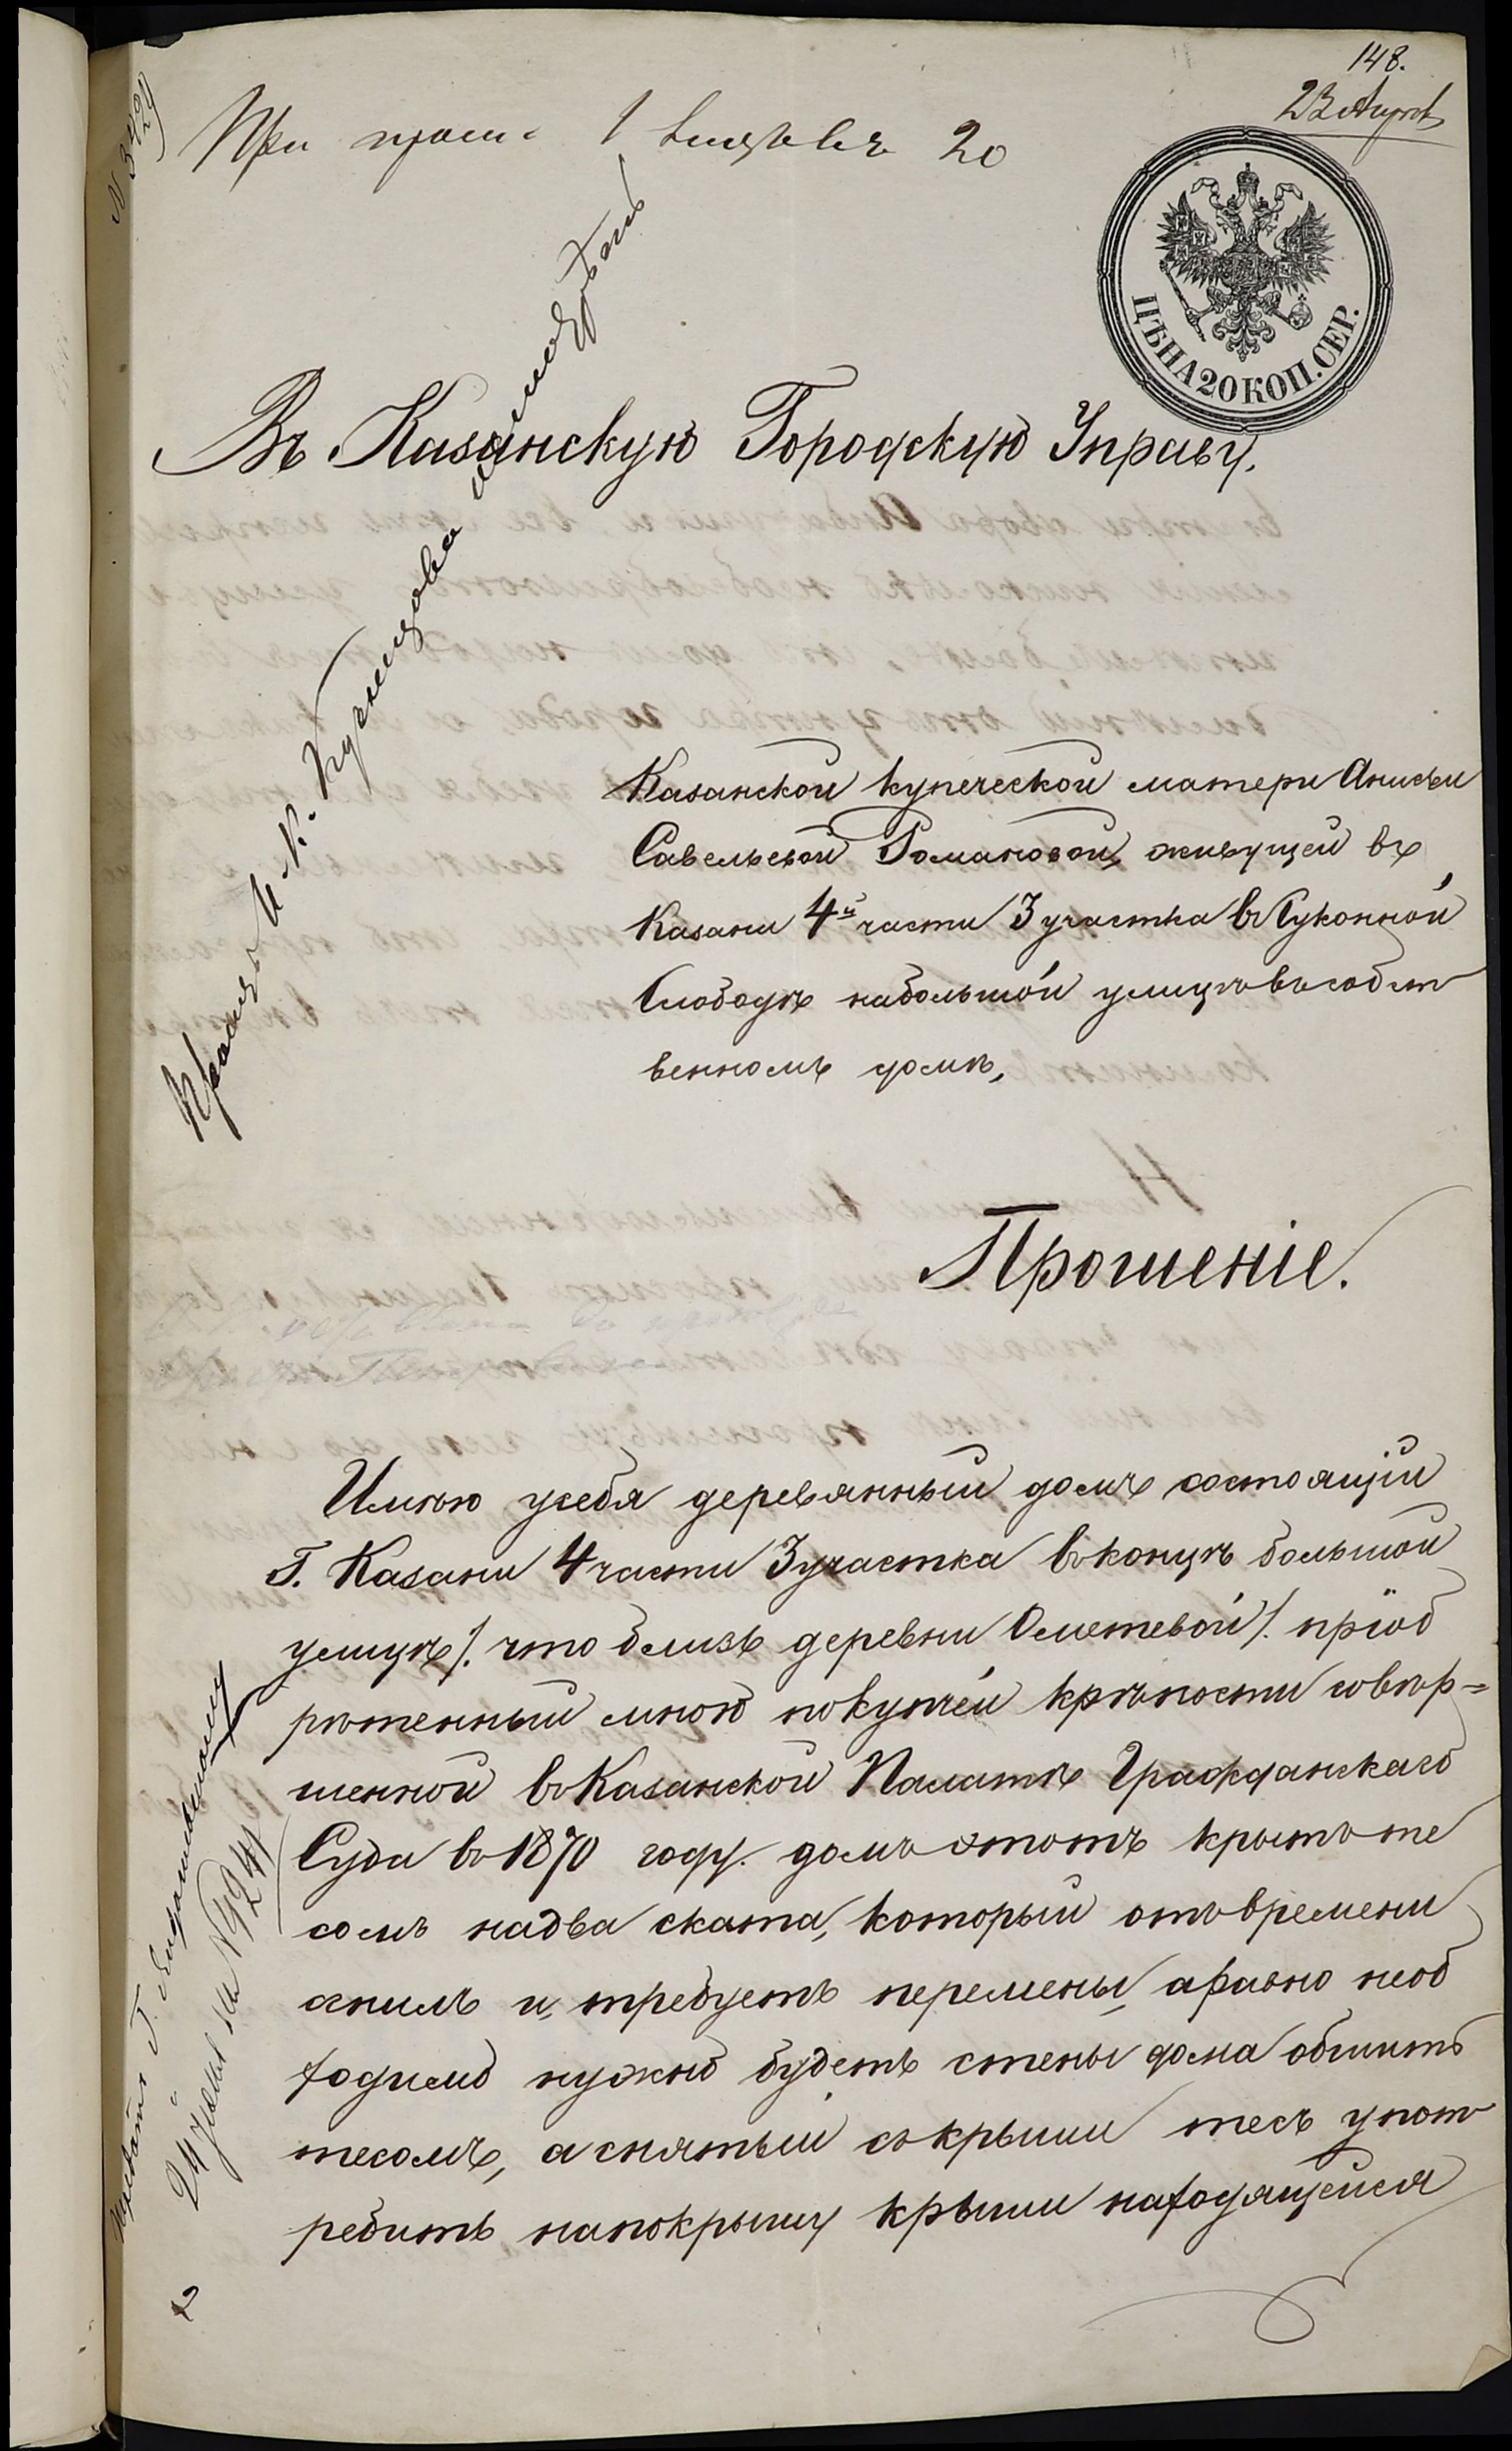 148.
23 Августа
№ 3429
При прош. 1 20
ЦѢНА 20 КОП. СЕР.
Въ Казанскую Городскую Управу.
Прошу И. К. Кузнецова
Казанской купеческой матери Анисьи
Савельевой Романовой, живущей въ
Казани 4й части 3 участка въ Суконной
Слободѣ набольшой улицѣ въ собст
венномъ домѣ,
Прошеніе.
Имѣю усебя деревянный домъ состоящій
Г. Казани 4 части 3 участка вконцѣ большой
улицѣ /. что близь деревни Аметевой /. пріоб
рѣтенный мною покупчей крѣпости совѣр=
шенной вКазанской Палатѣ Гражданскаго
Суда в 1870 году. домъ этотъ крытъ те
сомъ надва ската, который отъ времени
сгнилъ и, требуетъ перемены, аравно необ
ходимо нужно будетъ стены дома обшить
тесомъ, аснятый скрыши тесъ упот
ребить напокрышу крыши находящейся
24 № 924